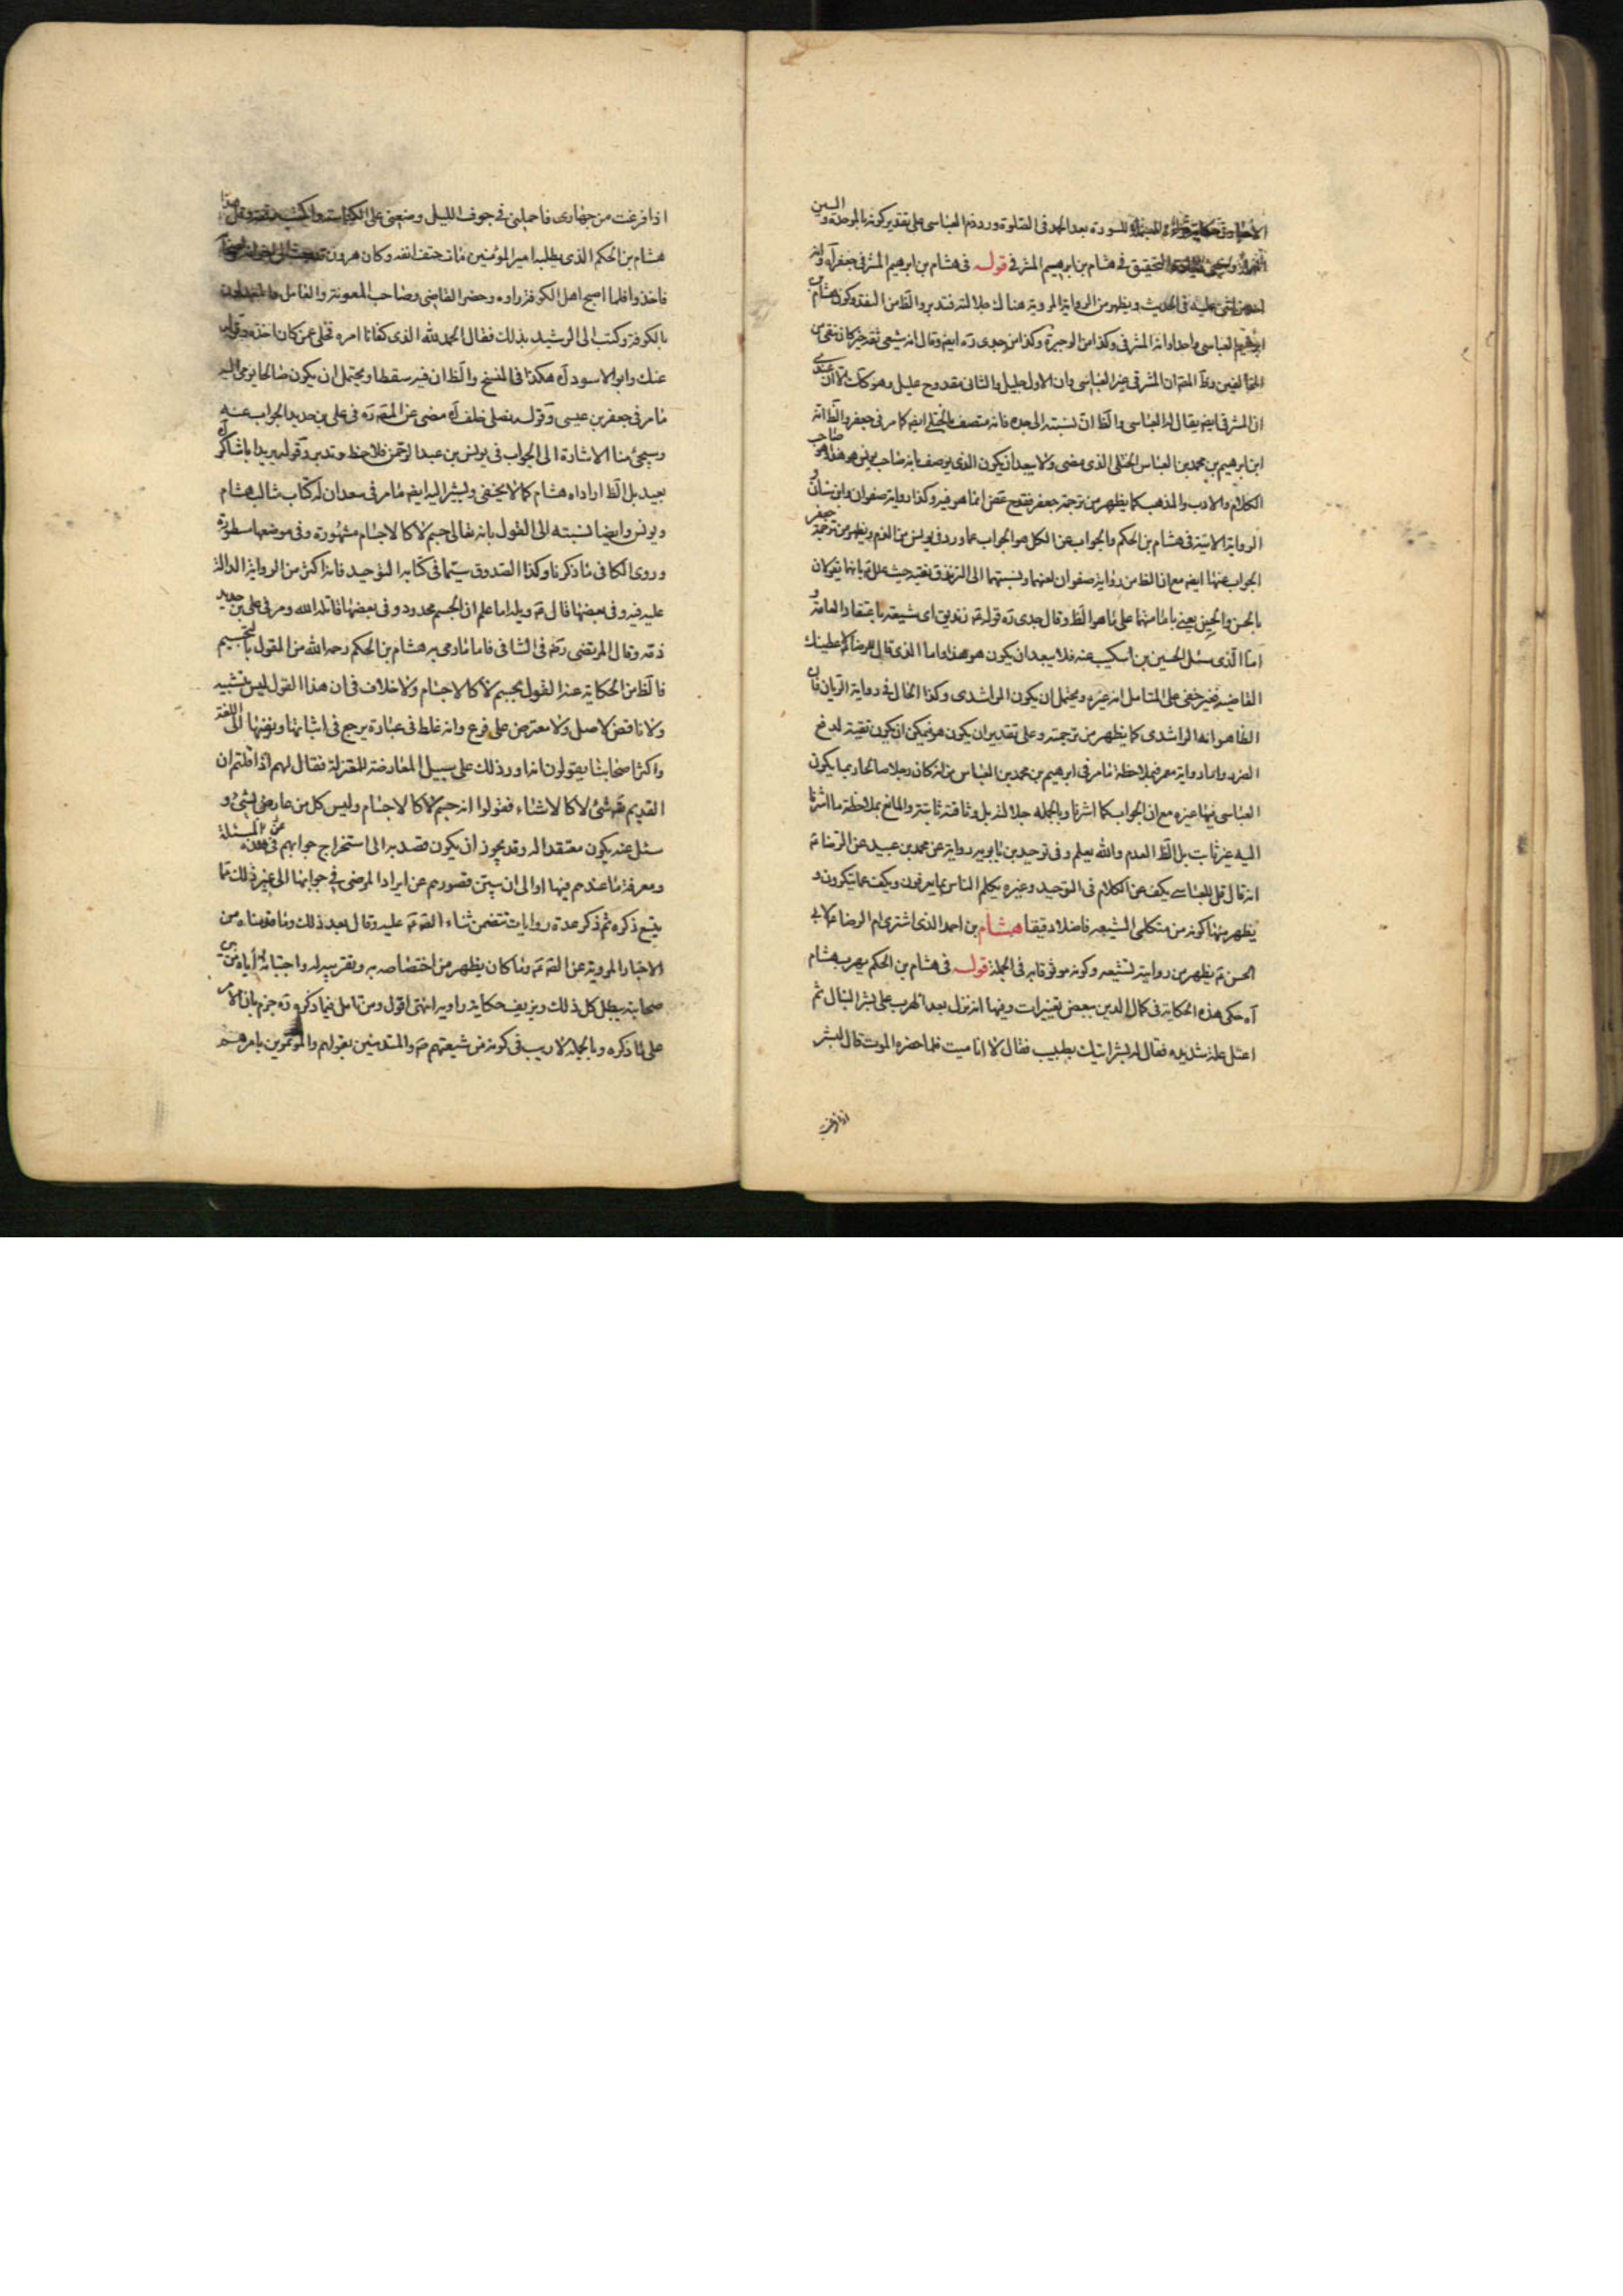 للسورة بعد الحمد فى الصلوة وورد ذم العباسى على تقدير كونه بالموحدة و السين
التحقيق فى هشام بن ابرهيم المشرقى قوله فى هشام بن ابرهيم المشرقى جعفر آه
فى الحديث ويظهر من الرواية المروية هناك جلالته فتدبر والظ من النقد وكون هشام بن
ابرهيم العباسى واحدا وانه المشرقى وكذا من الوجيزة وكذا من جدى ره ايض وقال انه شيعى ثقة خير كان يتقى من
المخالفين وظ المص ان المشرقى غير العباسى وان الاول جليل والثانى مقدوح عليل وهو كك الا ان عندى
ان المشرقى ايض يقال له العباسى والظ ان نسبته الى جده فانه متصف بالختلى ايض كما مر فى جعفر والظ انه
ابن ابرهيم بن محمد بن العباس الختلى الذى مضى ولا يبعد ان يكون الذى يوصف بانه صاحب يونس هو هذا هو صاحب
الكلام والادب والمذهب كما يظهر من ترجمة جعفر فقدح غض انما هو فيه وكذا رواية صفوان وابن سنان و
الرواية الاتية فى هشام بن الحكم والجواب عن الكل هو الجواب عما ورد فى يونس من الذم ويظهر من ترجمة جعفر
الجواب عنها ايض مع ان الظ من رواية صفوان لعنهما ونسبتهما الى الزندقة تقية حيث علله بانهما يقولان
بالحسن والحسين يعنى بامامتهما على ما هو الظ وقال جدى ره قوله ع زنديق اى شيعته باعتقاد العامة و
اما الذى سئل الحسين بن اسكيب عنه فلا يبعد ان يكون هو هذا واما الذى قال للرضا الا عطينك
القاضيه فغير خفى على المتامل انه غيره ويحتمل ان يكون الراشدى وكذا الحال فى رواية الريان فان
الظاهر انه الراشدى كما يظهر من ترجمته وعلى تقدير ان يكون هو فيمكن ان يكون تقية لدفع
الضرر واما رواية معمر فبملاحظة ما مر فى ابرهيم بن محمد بن العباس من انه كان رجلا صالحا ربما يكون
العباسى فيها غيره مع ان الجواب كما اشرنا وبالجمله جلالته بل وثاقته ثابتة والمانع بملاحظة ما اشرنا
اليه غير ثابت بل الظ العدم والله يعلم وفى توحيد بن بابويه رواية عن محمد بن عبيد عن الرضا ع
انه قال قل للعباسى يكف عن الكلام فى التوحيد وغيره يكلم الناس بما يعرفون ويكف عما ينكرون و
يظهر منها كونه من متكلمى الشيعه فاضلا دقيقا هشام بن احمد الذى اشترى ام الرضا ع لابى
الحسن ع يظهر من روايته تشيعه وكونه موثوقا به فى الجملة قوله فى هشام بن الحكم يهرب هشام
آه حكى هذه الحكاية فى كمال الدين ببعض تغييرات وفيها انه نزل بعد الهرب على بشر النبال ثم
اعتل علة شديده فقال له بشر اتيك بطبيب فقال لا انا ميت فلما حضره الموت قال لبشر
اذا فرغت
اذا فرغت من جهازى فاحملنى فى جوف الليل وضعنى على الكناسة واكتب رقعة وقل هذا
هشام بن الحكم الذى يطلبه امير المؤمنين مات حتف انفه وكان هرون
فاخذوا فلما اصبح اهل الكوفة راوه وحضر القاضى وصاحب المعونة والعامل والمعدلون
بالكوفة وكتب الى الرشيد بذلك فقال الحمد لله الذى كفانا امره فخلى عمن كان اخذه وقوله
عنك وابو الاسود آه هكذا فى النسخ والظ ان فيه سقطا ويحتمل ان يكون صالحا يؤمى اليه
ما مر فى جعفر بن عيسى وقوله نصلى خلف آه مضى عن المص ره فى على بن حديد الجواب عنه
وسيجئ منا الاشارة الى الجواب فى يونس بن عبد الرحمن فلاحظ وتدبر وقوله يريد اباشاكر آه
بعيد بل الظ اراداه هشام كما لا يخفى ويشير اليه ايض ما مر فى سعد ان له كتاب مثالب هشام
ويونس وايضا نسبته الى القول بانه تعالى جسم لا كالاجسام مشهورة وفى موضعها مسطورة
وروى الكافى ما ذكرنا وكذا الصدوق سيما فى كتابه التوحيد فانه اكثر من الرواية الدالة
عليه فيه وفى بعضها قال ع ويله اما علم ان الجسم محدود وفى بعضها قاتله الله ومر فى على بن حديد
ذمه وقال المرتضى رض فى الشافى فاما ما رمى به هشام بن الحكم رحمه الله من القول بالتجسيم
فالظ من الحكاية عنه القول بجسم لا كالاجسام ولا خلاف فى ان هذا القول ليس بتشبيه
ولا ناقض لاصل ولا معترض على فرع وانه غلط فى عبارة يرجع فى اثباتها ونفيها الى اللغة
واكثر اصحابنا يقولون انه اورد ذلك على سبيل المعارضة للمعتزلة فقال لهم اذا قلتم ان
القديم تع شئ لا كالاشياء فقولوا انه جسم لا كالاجسام وليس كل من عارض بشئ و
سئل عنه يكون معتقدا له وقد يجوز ان يكون قصد به الى استخراج جوابهم عن هذه المسئلة
ومعرفة ما عندهم فيها او الى ان يبين قصورهم عن ايراد المرضى فى جوابها الى غير ذلك مما
يتسع ذكره ثم ذكر عدة روايات تتضمن ثناء الص ع عليه وقال بعد ذلك وما قدمناه من
الاخبار المروية عن الص ع وما كان يظهر من اختصاصه به وتقريبه له واجتبائه اياه من بين
صحابته يبطل كل ذلك ويزيف حكاية راويه انتهى اقول ومن تامل فيما ذكره ره جزم بان الامر
على ما ذكره وبالجملة لا ريب فى كونه من شيعتهم ع والمتدينين بقولهم والمؤتمرين بامرهم